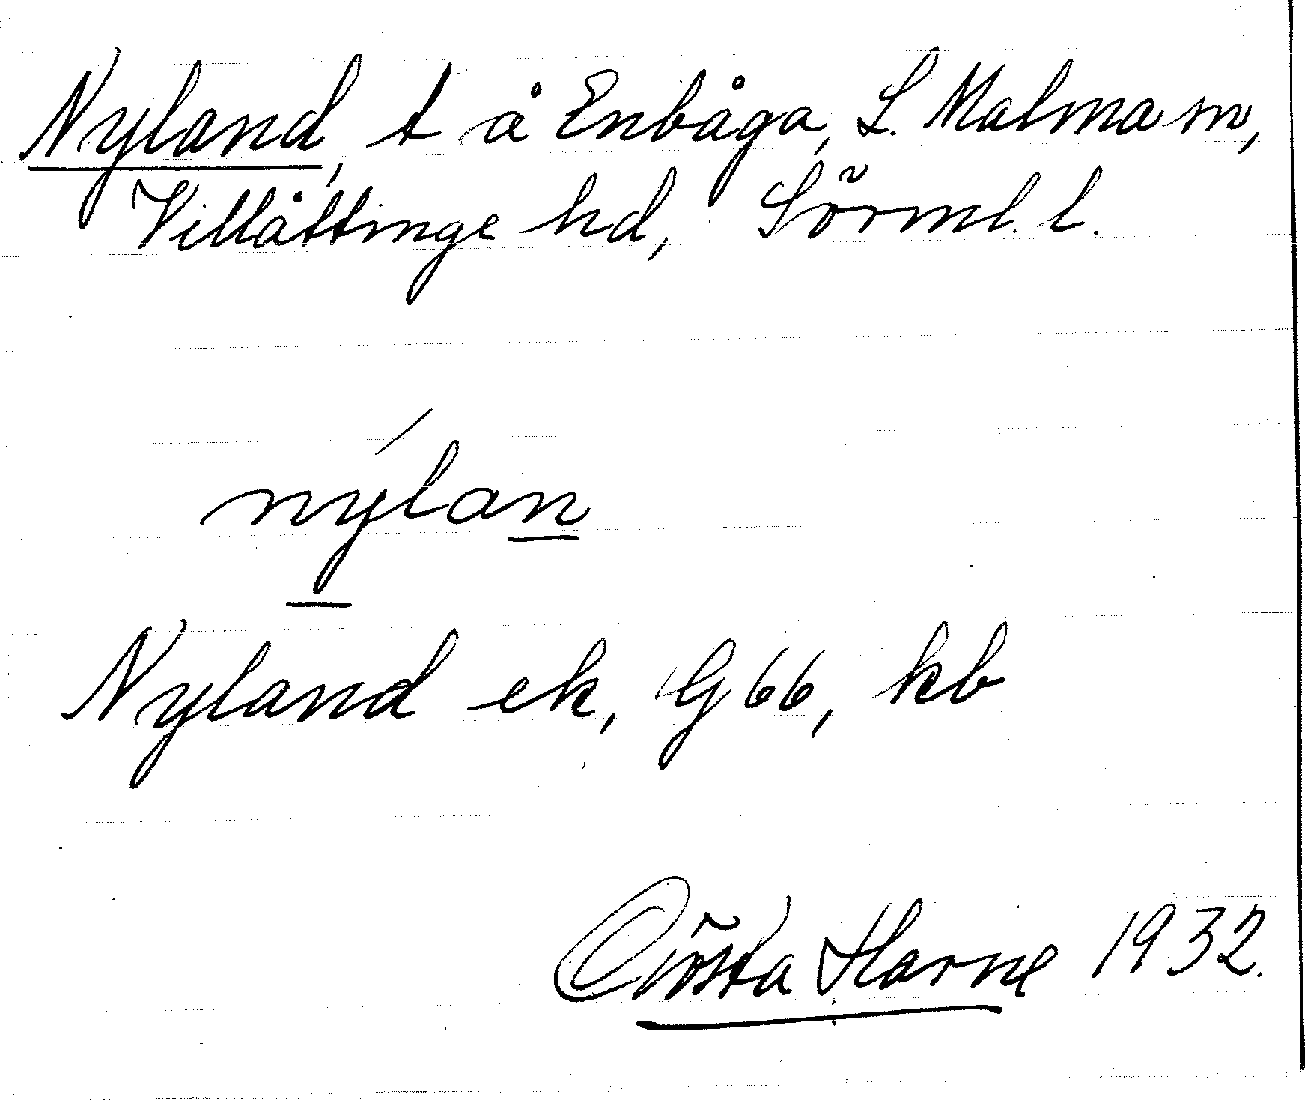 Nyland, t å Enbåga, L. Malma sn,
Villåttinge hd, Sörml. l.
nýlan
Nyland ek, G66, kb
Gösta Harne 1932.